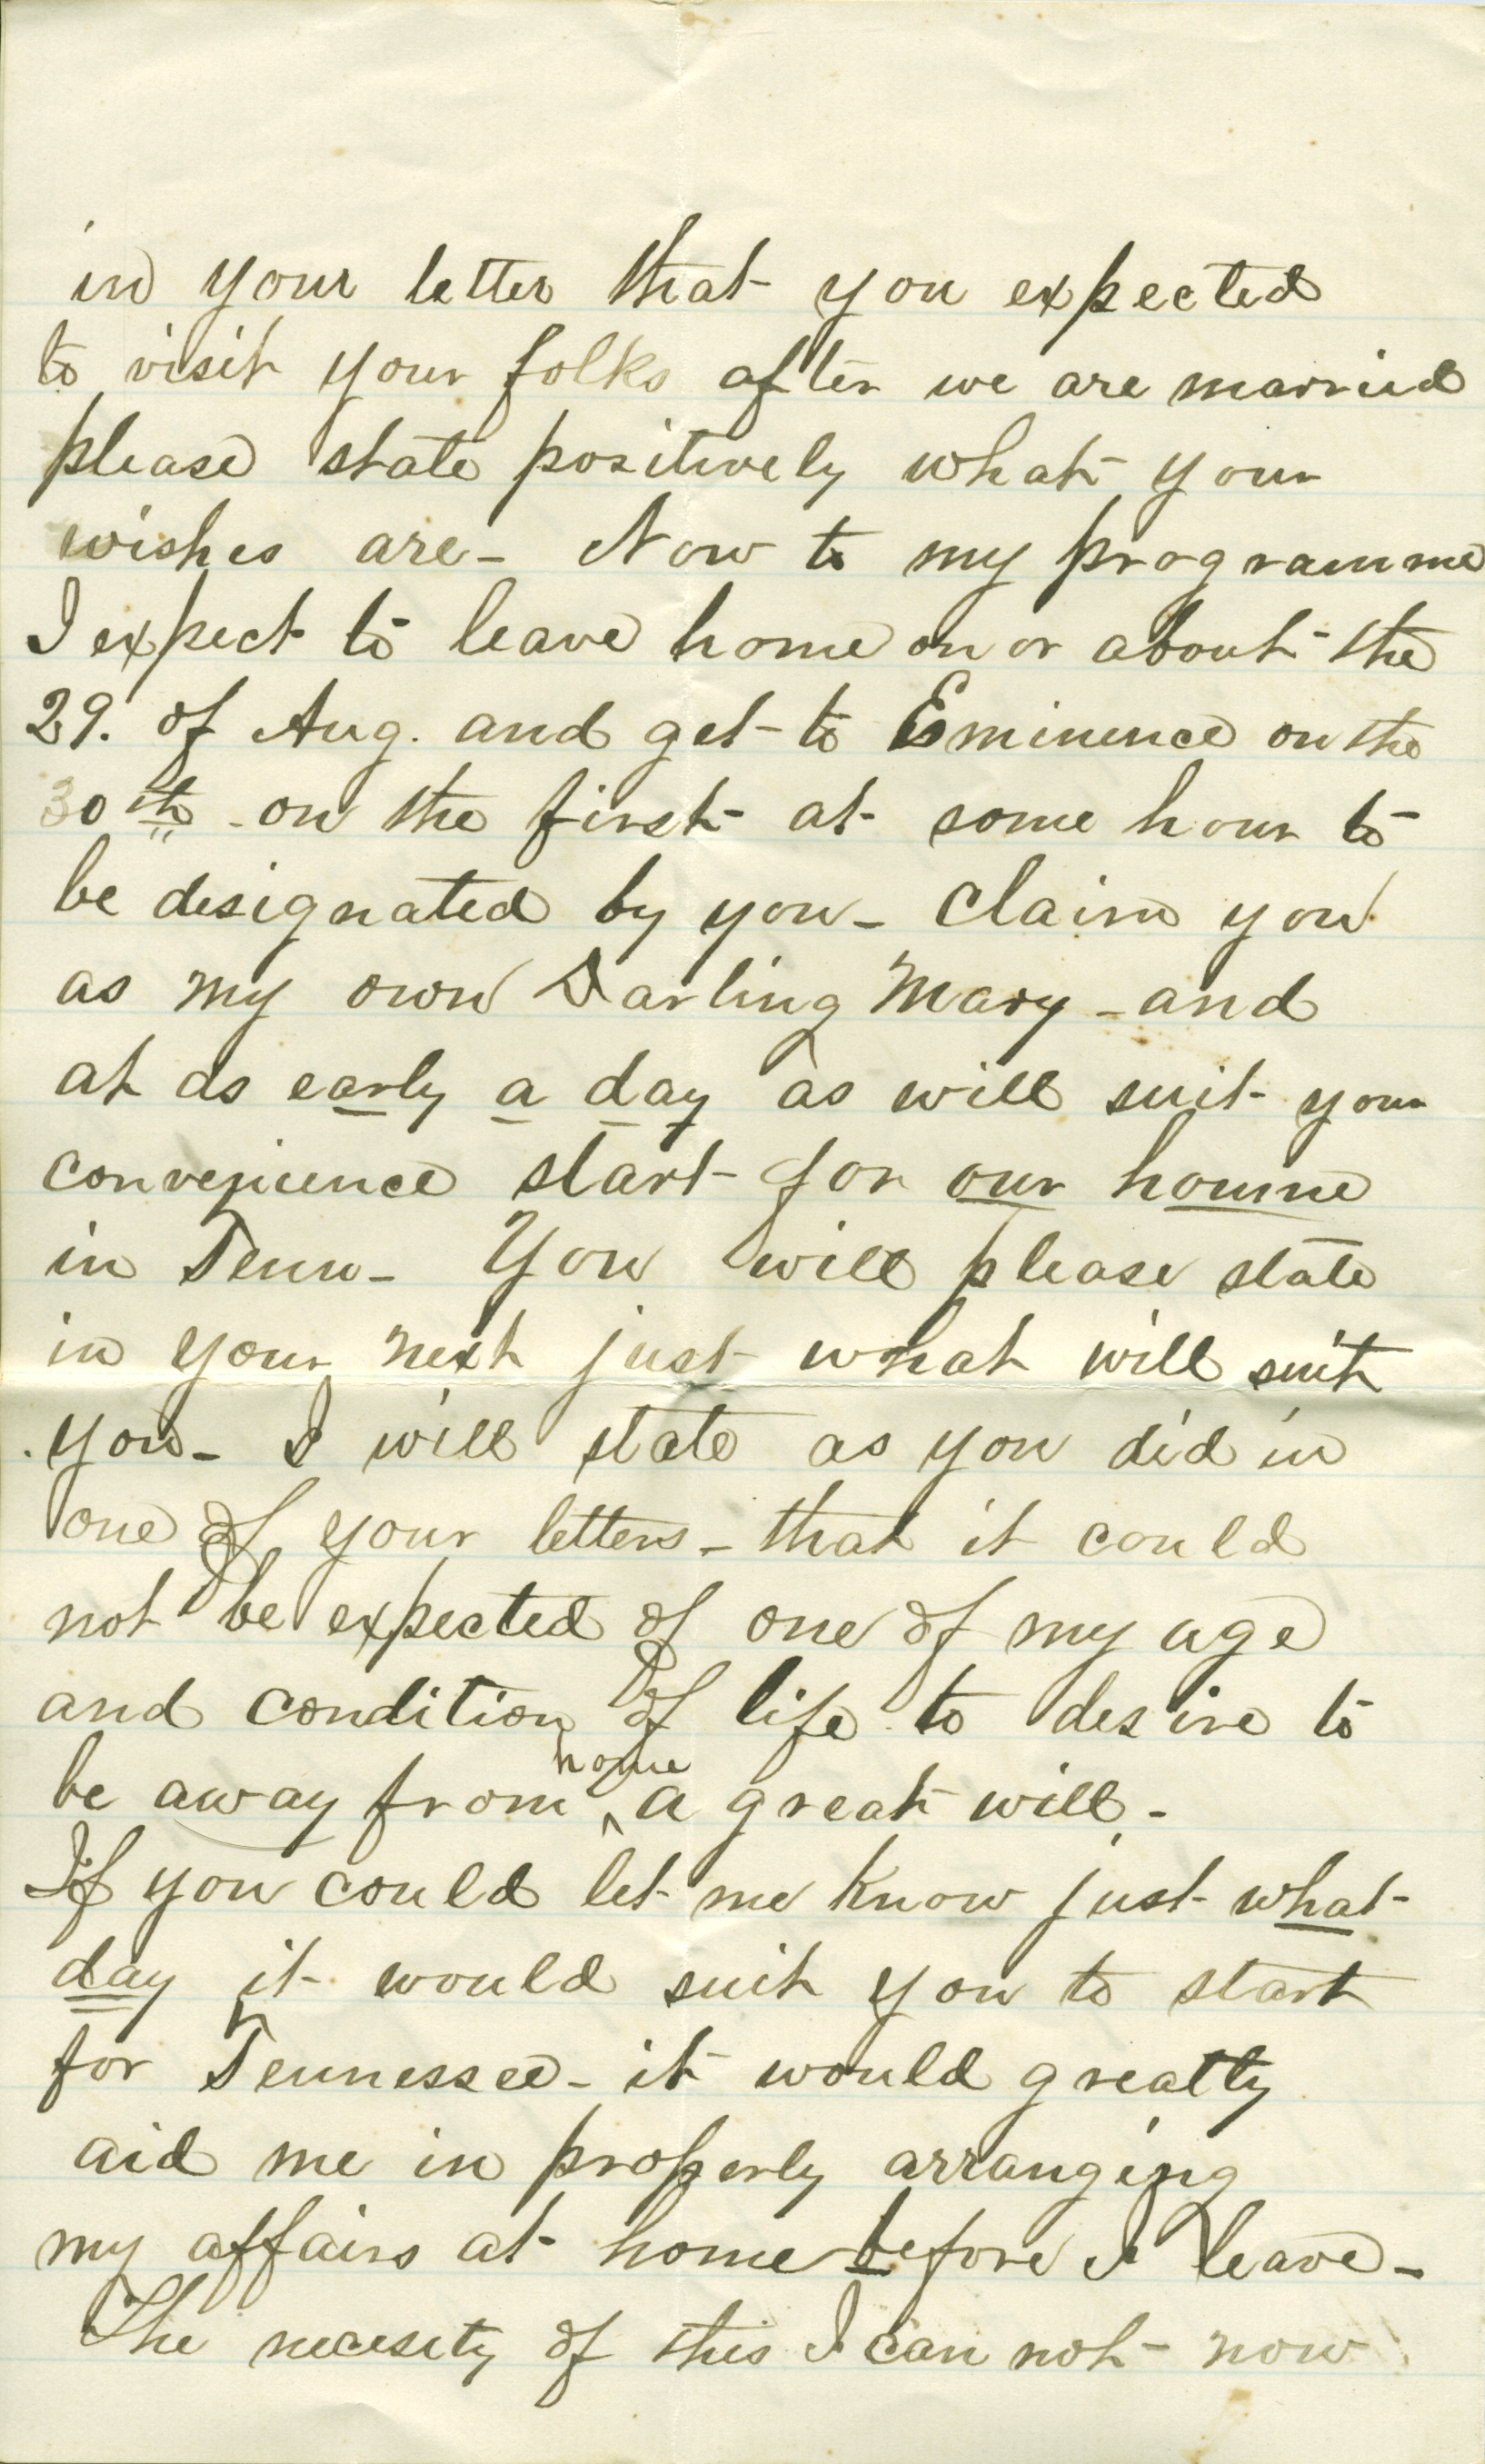 in your letter that you expected
to visit your folks after we are married
please state positively what your
wishes are - Now to my programme
I expect to leave home on or about the
29. of Aug. and get to Eminence on the
30th - on the first at some hour to
be designated by you - claim you
as my own Darling Mary - and
at as early a day as will suit your
convenience start for our homme
in Tenn - You will please state
in your next just what will suit
you - I will state as you did in
one of your letters - that it could
not be expected of one of my age
and condition of life to desire to
be away from home a great will -
If you could let me know just what
day it would suit you to start
for Tennessee - it would greatly
aid me in properly arranging
my affairs at home before I leave -
The necesity of this I can not now